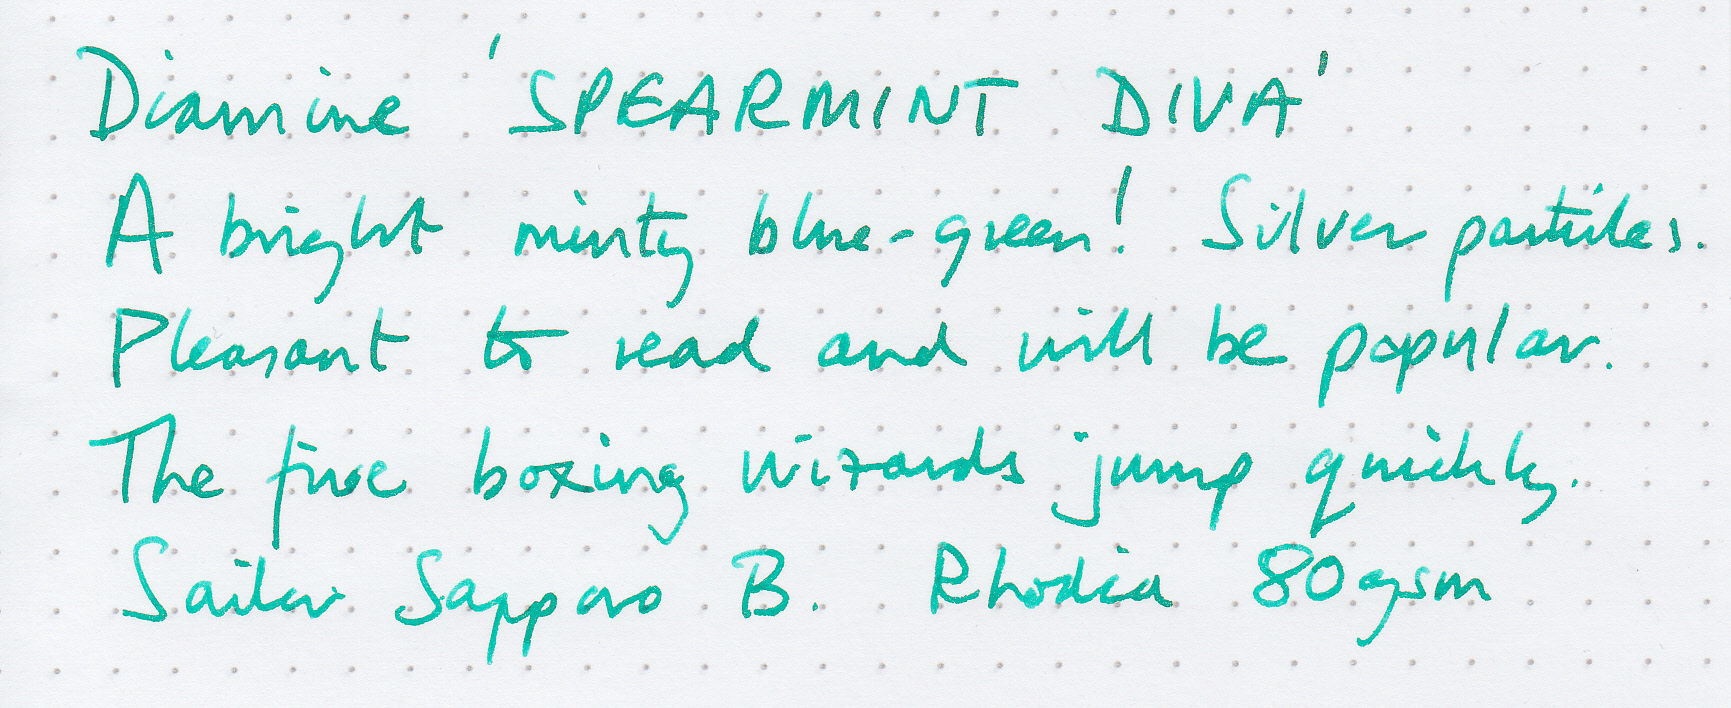 Diamine 'SPEARMINT DIVA'
A bright minty blue-green! Silver particles.
Pleasant to read and will be popular.
The five boxing wizards jump quickly.
Sailor Sapporo B. Rhodia 80gsm